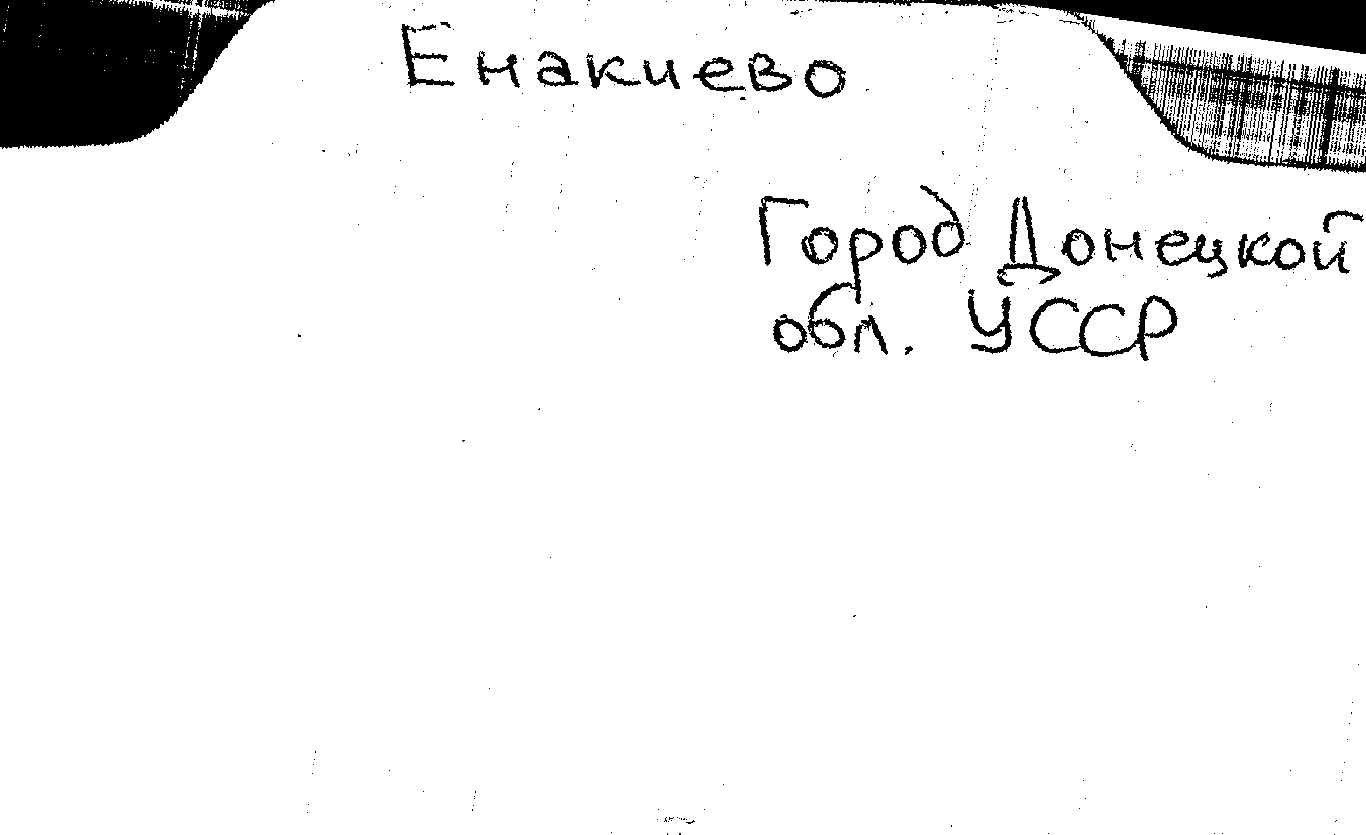 Енакиево
Город Донецкой
обл. УССР